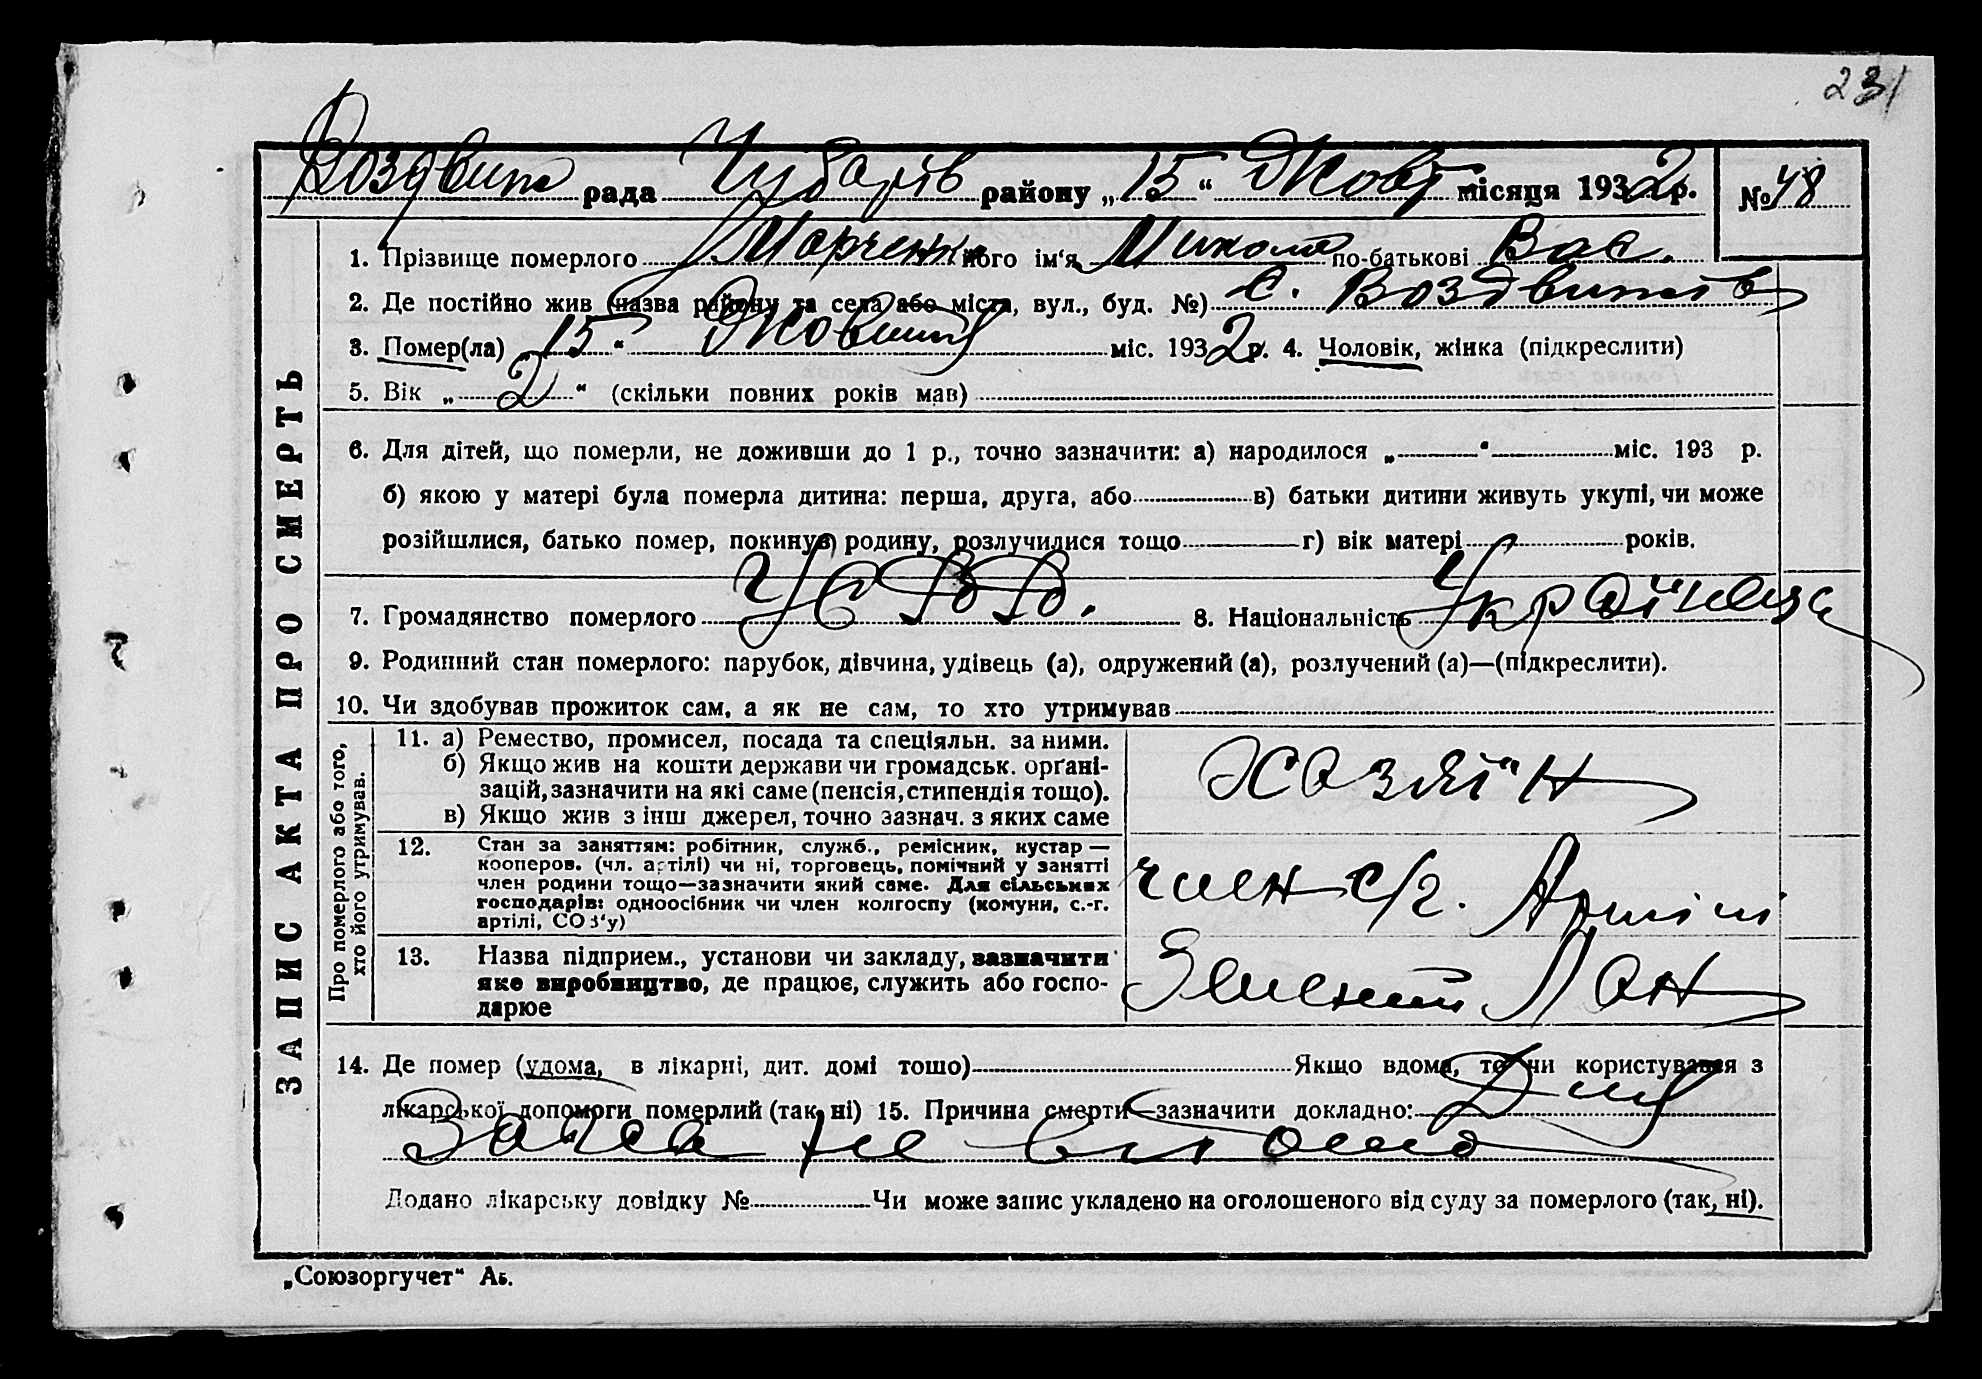 231
Воздвиж рада Чубарів району „15“ Жовт місяця 1932 р. № 48
ЗАПИС АКТА ПРО СМЕРТЬ
1. Прізвище померлого Марченко його ім'я Микола по-батькові Вас.
2. Де постійно жив (назва району та села або міста, вул., буд. №) с. Воздвижів
3. Помер(ла) „15“ Жовтня міс. 1932 р. 4. Чоловік, жінка (підкреслити)
5. Вік „2“ (скільки повних років мав)
6. Для дітей, що померли, не доживши до 1 р., точно зазначити: а) народилося „ “ міс. 193 р.
б) якою у матері була померла дитина: перша, друга, або в) батьки дитини живуть укупі, чи може
розійшлися, батько помер, покинув родину, розлучилися тощо г) вік матері років.
7. Громадянство померлого УСРР. 8. Національність
9. Родинний стан померлого: парубок, дівчина, удівець (а), одружений (а), розлучений (а)—(підкреслити).
10. Чи здобував прожиток сам, а як не сам, то хто утримував
Про померлого або того, хто його утримував.
11. а) Ремество, промисел, посада та спеціяльн. за ними.
б) Якщо жив на кошти держави чи громадськ. орґані-
зацій, зазначити на які саме (пенсія, стипендія тощо).
в) Якщо жив з інш джерел, точно зазнач. з яких саме
Хазяїн
12. Стан за заняттям: робітник, служб., ремісник, кустар —
кооперов. (чл. артілі) чи ні, торговець, помічний у занятті
член родини тощо—зазначити який саме. Для сільських
господарів: одноосібник чи член колгоспу (комуни, с.-г.
артілі, СОЗ'у)
член с/г. Артілі
13. Назва підприєм., установи чи закладу, зазначити
яке виробництво, де працює, служить або госпо-
дарює
Зелений Лан
14. Де помер (удома, в лікарні, дит. домі тощо) Якщо вдома, то чи користувався з
лікарської допомоги померлий (так, ні) 15. Причина смерти—зазначити докладно:
не
Додано лікарську довідку № Чи може запис укладено на оголошеного від суду за померлого (так, ні).
„Союзоргучет“